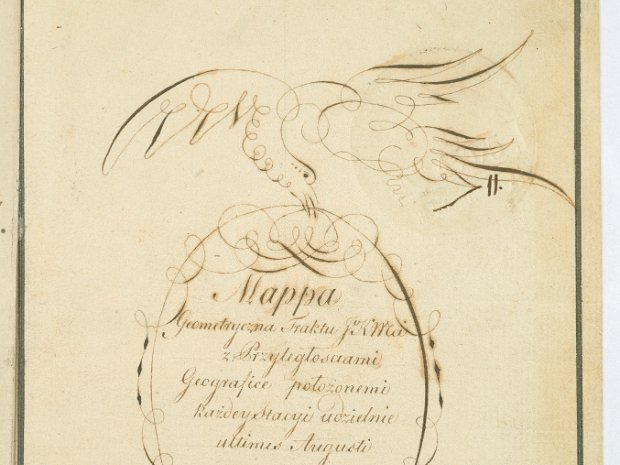 11.
Mappa
Geometryczna Traktu Jº K Mci
z Przyległosciami
Geografice położonemi
każdey Stacyi udzielnie
ultimis Augusti